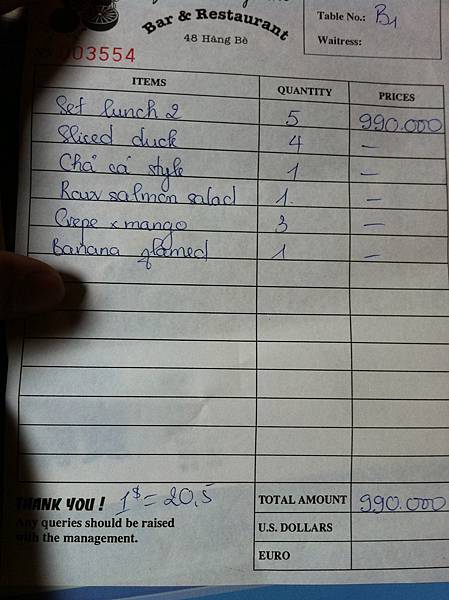 Bar & Restaurant
48 Hàng Bè
Table No.: B1
Waitress:
003554
ITEMS QUANTITY PRICES
Set lunch 2 5 990.000
Sliced duck 4 —
Chả cá style 1 —
Raw salmon salad 1. —
Crepe x mango 3 —
Banana flamed 1 —
THANK YOU! 1$ = 20,5
Any queries should be raised
with the management.
TOTAL AMOUNT 990.000
U.S. DOLLARS
EURO